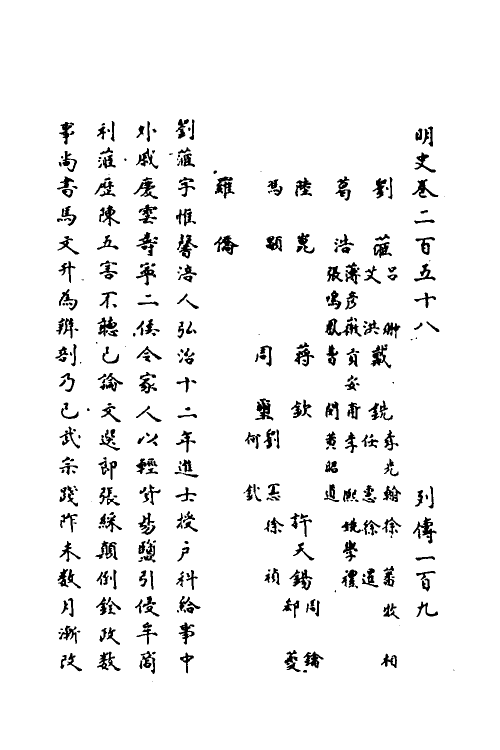 明史卷二百五十八　列傳一百九
劉蒞　呂翀　艾洪　戴銑　李光翰　徐蕃　牧相　任惠　徐暹
葛浩　薄彥徽　貢安甫　李熙　姚學禮　張鳴鳳　曹閔　黃昭道
陸崑　蔣欽　許天錫　周鑰　郗夔
馮顒　周璽　劉憲　徐禎　何釴
羅僑
劉蒞字惟馨涪人弘治十二年進士授戶科給事中
外戚慶雲壽寧二侯令家人以輕貨易鹽引侵牟商
利蒞歷陳五害不聽已論文選郎張綵顛倒銓政數
事尚書馬文升為辨剖乃已武宗踐阼未數月漸改